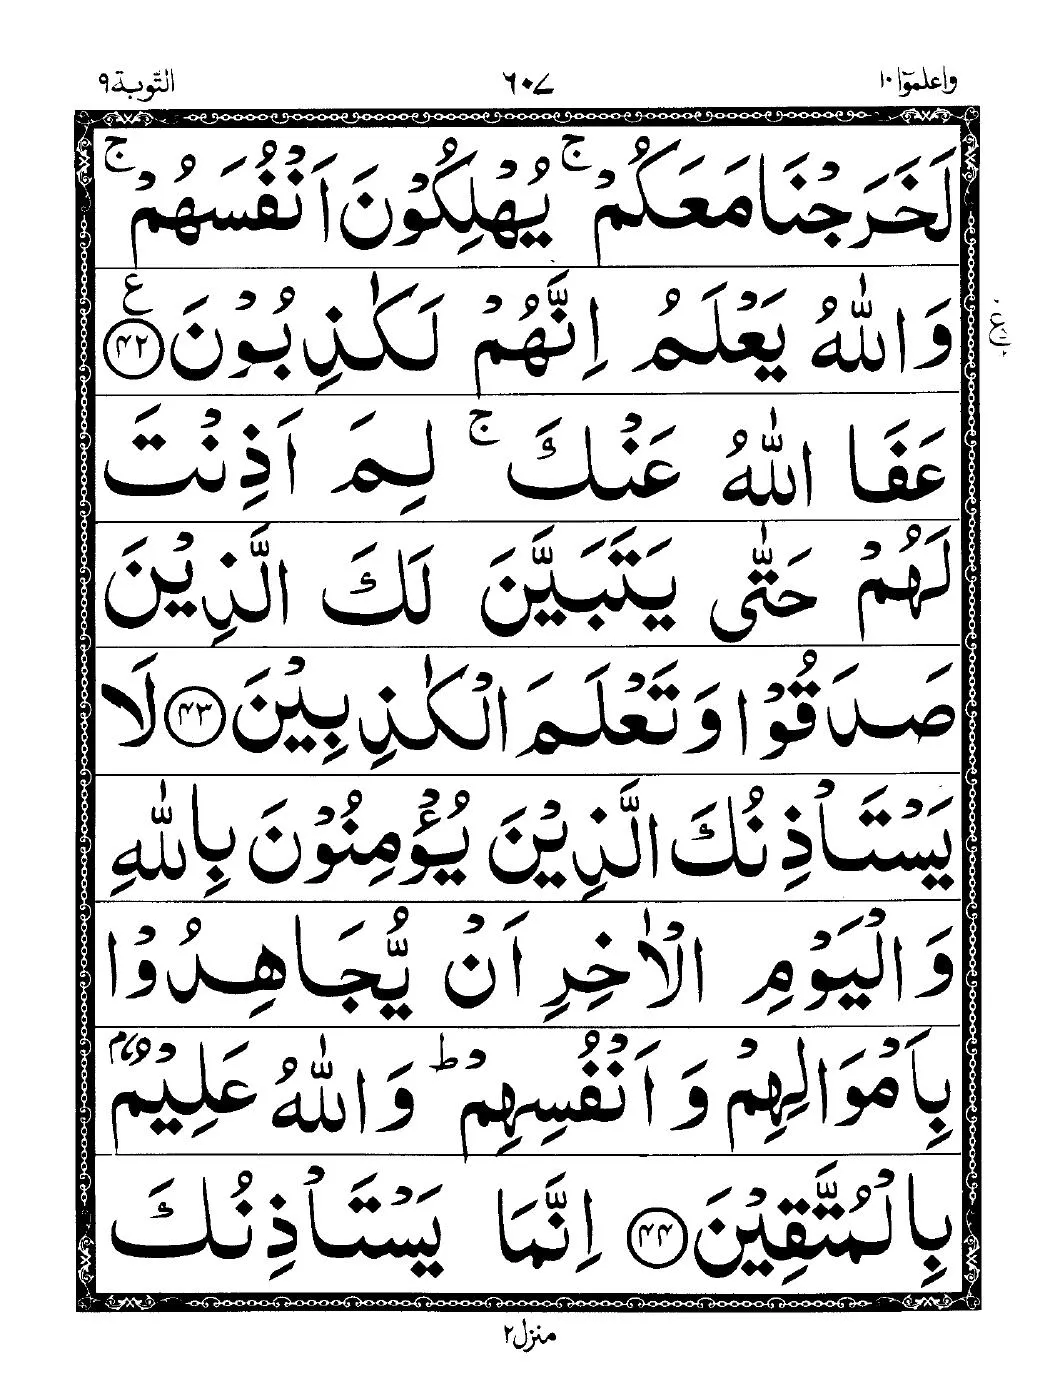 واعلموٓا ١٠
٦٠٧
التّوبة ٩
لَخَرَجْنَا مَعَكُمْ ۚ يُهْلِكُوْنَ اَنْفُسَهُمْ ۚ
وَاللّٰهُ يَعْلَمُ اِنَّهُمْ لَكٰذِبُوْنَ ﴿۴۲﴾ ع
عَفَا اللّٰهُ عَنْكَ ۚ لِمَ اَذِنْتَ
لَهُمْ حَتّٰى يَتَبَيَّنَ لَكَ الَّذِيْنَ
صَدَقُوْا وَتَعْلَمَ الْكٰذِبِيْنَ ﴿۴۳﴾ لَا
يَسْتَاْذِنُكَ الَّذِيْنَ يُؤْمِنُوْنَ بِاللّٰهِ
وَالْيَوْمِ الْاٰخِرِ اَنْ يُّجَاهِدُوْا
بِاَمْوَالِهِمْ وَاَنْفُسِهِمْ ؕ وَاللّٰهُ عَلِيْمٌۢ
بِالْمُتَّقِيْنَ ﴿۴۴﴾ اِنَّمَا يَسْتَاْذِنُكَ
منزل ٢